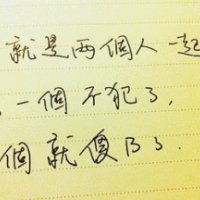 就是两個人一起
一個不犯了，
個就傻B了.